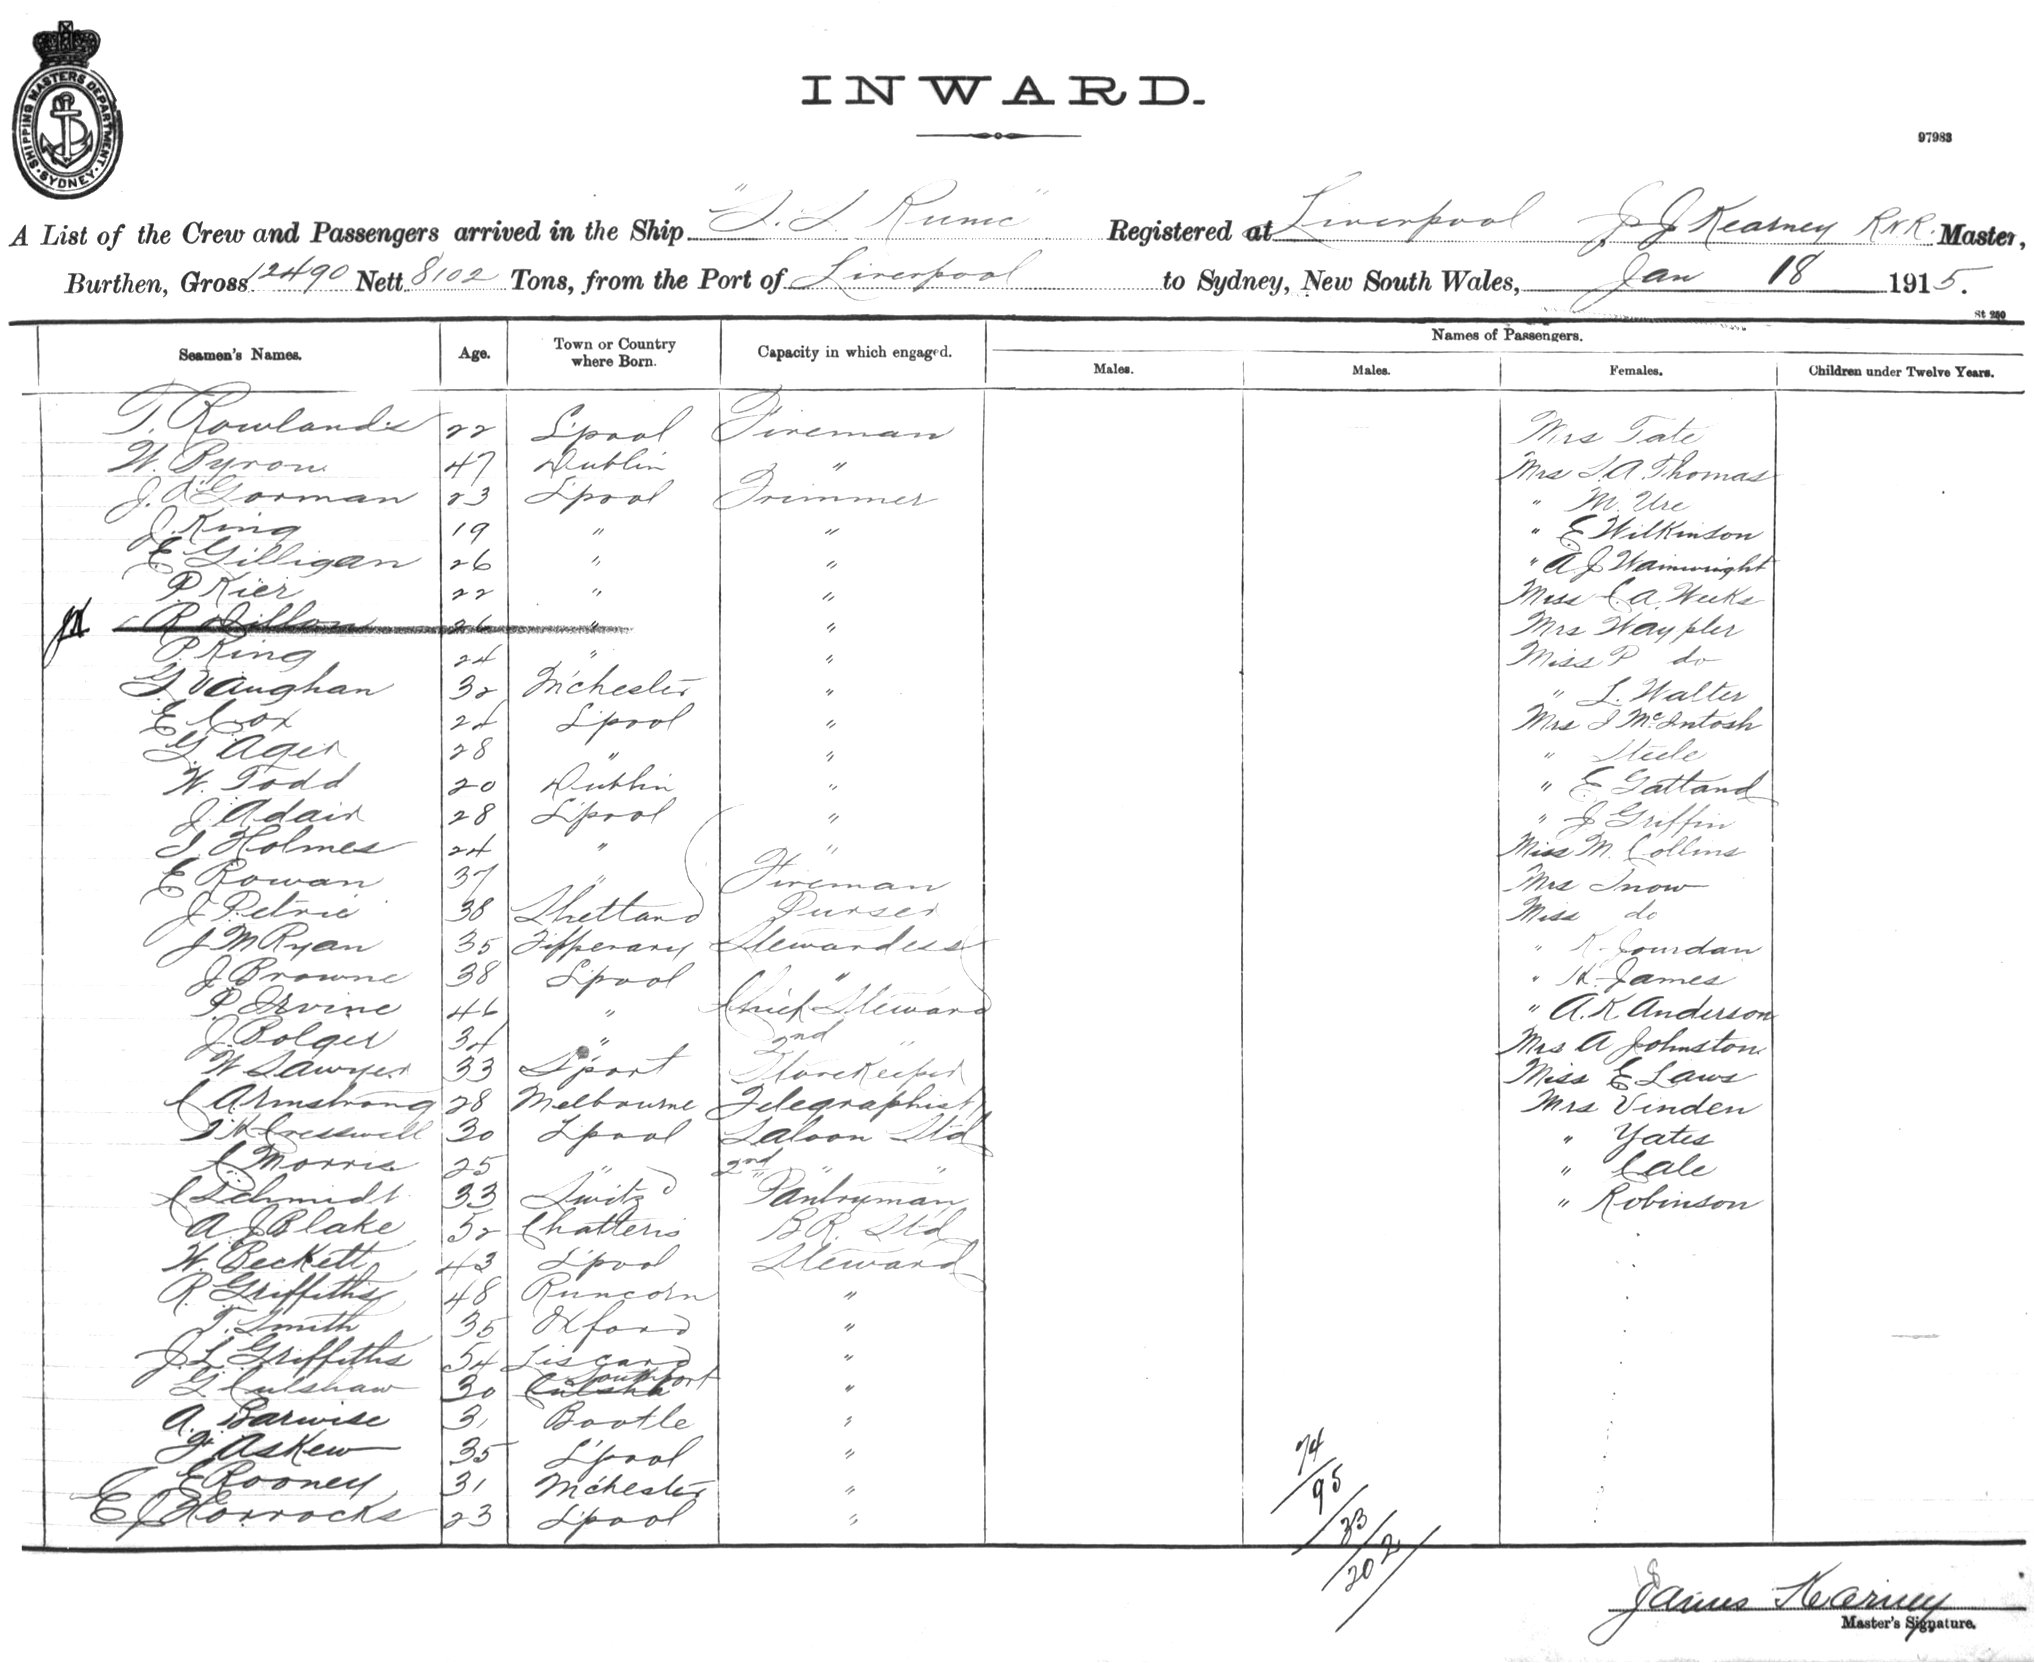 SHIPPING MASTERS DEPARTMENT. SYDNEY.
INWARD.
97983
A List of the Crew and Passengers arrived in the Ship "S. S Runic" Registered at Liverpool J J Kearney RNR. Master,
Burthen, Gross 12490 Nett 8102 Tons, from the Port of Liverpool to Sydney, New South Wales, Jan 18 1915.
St 250
Names of Passengers.
Seamen's Names. Age. Town or Country where Born. Capacity in which engaged. Males. Males. Females. Children under Twelve Years.
T. Rowlands 22 L'pool Fireman Mrs Tate
W. Byron 47 Dublin " Mrs S. A. Thomas
J. O'Gorman 23 L'pool Trimmer " M. Ure
J. King 19 " " " E Wilkinson
E Gilligan 26 " " " A J Wainwright
P. Kier 22 " " Miss C. A. Weeks
R Dillon 26 " " Mrs Waypler
P. King 24 " " Miss P do
G Vaughan 32 M'chester " " L. Walter
E Cox 24 L'pool " Mrs J McIntosh
G. Ager 28 " " " Steele
W. Todd 20 Dublin " " E Gatland
J. Adair 28 L'pool " " J Griffin
J. Holmes 24 " " Miss M. Collins
E Rowan 37 " Fireman Mrs Snow
J Petrie 38 Shetland Purser Miss do
J M Ryan 35 Tipperary Stewardess " K. Jourdan
J. Browne 38 L'pool " " H. James
P. Irvine 46 " Chief Steward " A. K Anderson
J. Bolger 34 " 2nd " Mrs A Johnston
W Sawyer 33 S'port Storekeeper Miss E Laws
C Armstrong 28 Melbourne Telegraphist Mrs Vinden
J H Cresswell 30 L'pool Saloon Std " Yates
C Morris 25 " 2nd " " " Cale
C Schmidt 33 Switzd Pantryman " Robinson
A. J Blake 52 Chatteris B R. Std
W. Beckett 43 L'pool Steward
R. Griffiths 48 Runcorn "
T. Smith 35 Oxford "
J. L Griffiths 54 Liscard "
G. Culshaw 30 Culsha Southport "
A. Barwise 31 Bootle "
J. Askew 35 L'pool "
E Rooney 31 M'chester "
E J Horrocks 23 L'pool "
74
95
33
202
James Kearney
Master's Signature.